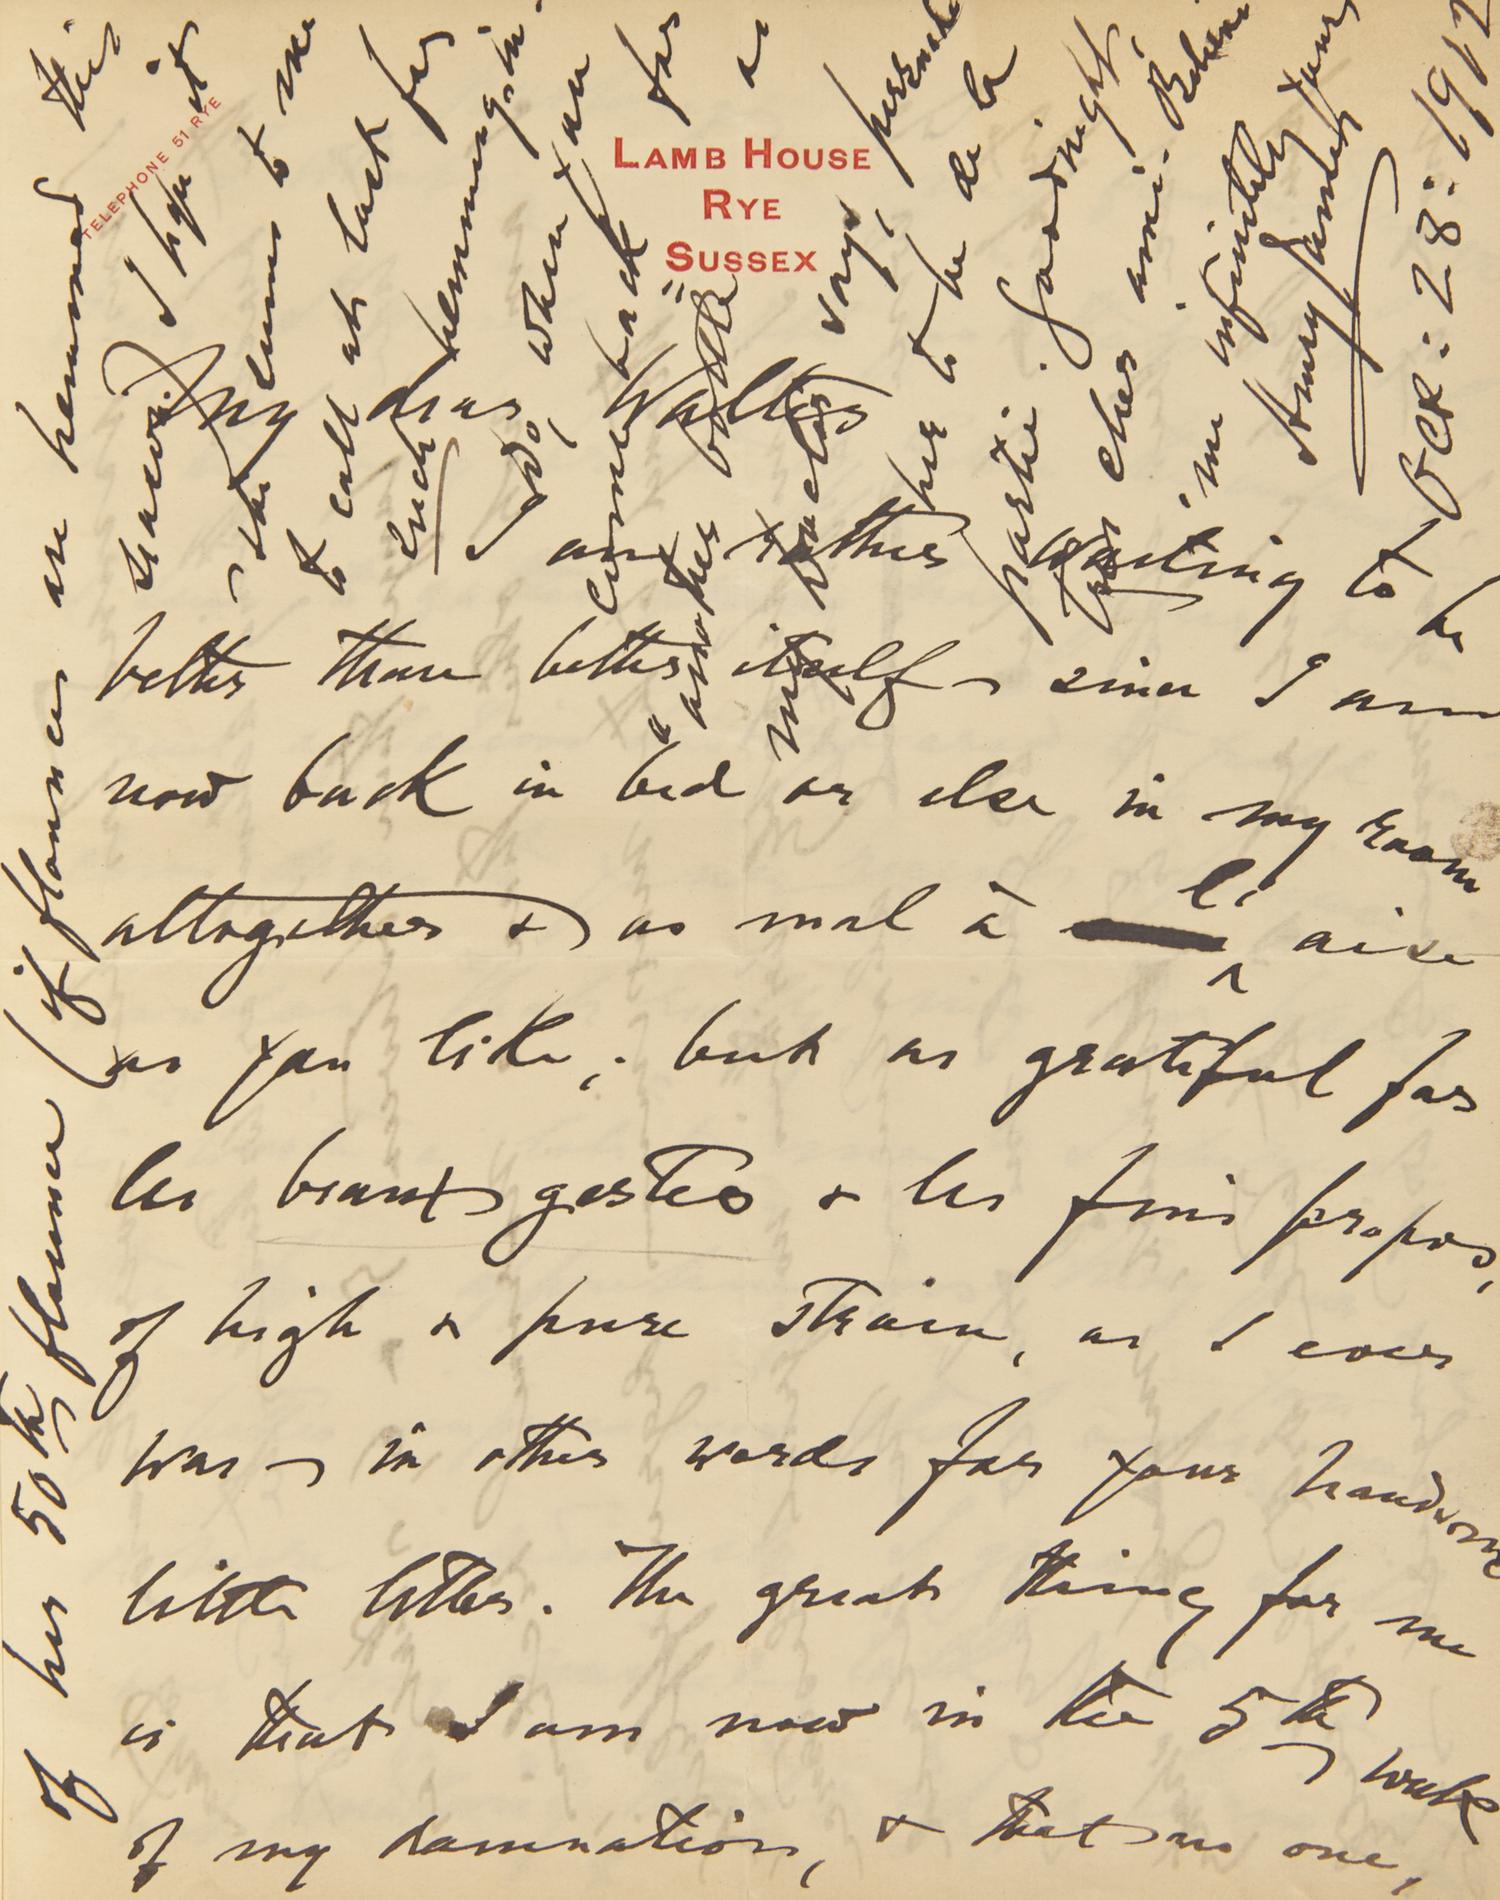 TELEPHONE 51 RYE
LAMB HOUSE
RYE
SUSSEX
My dear Walter
I am rather writing to be
better than better itself – since I am
now back in bed or else in my room
altogether & as mal à l' aise
as you like; but as grateful for
les beaux gestes & les fins propos,
of high & pure strain, as I ever
was – in other words for your handsome
little letter. The great thing for me
is that I am now in the 5th week
of my damnation, & that no one,
of her 50th flounce (if flounces are hemmed this
I hope it
– she seems to me
to call at last for
such hemming-in.
I do, when you
come back for
"another bottle"
says,
her to be de la
partie. Goodnight,
cher ami. Believe
me infinitely yours
Henry James
Oct: 28: 1912